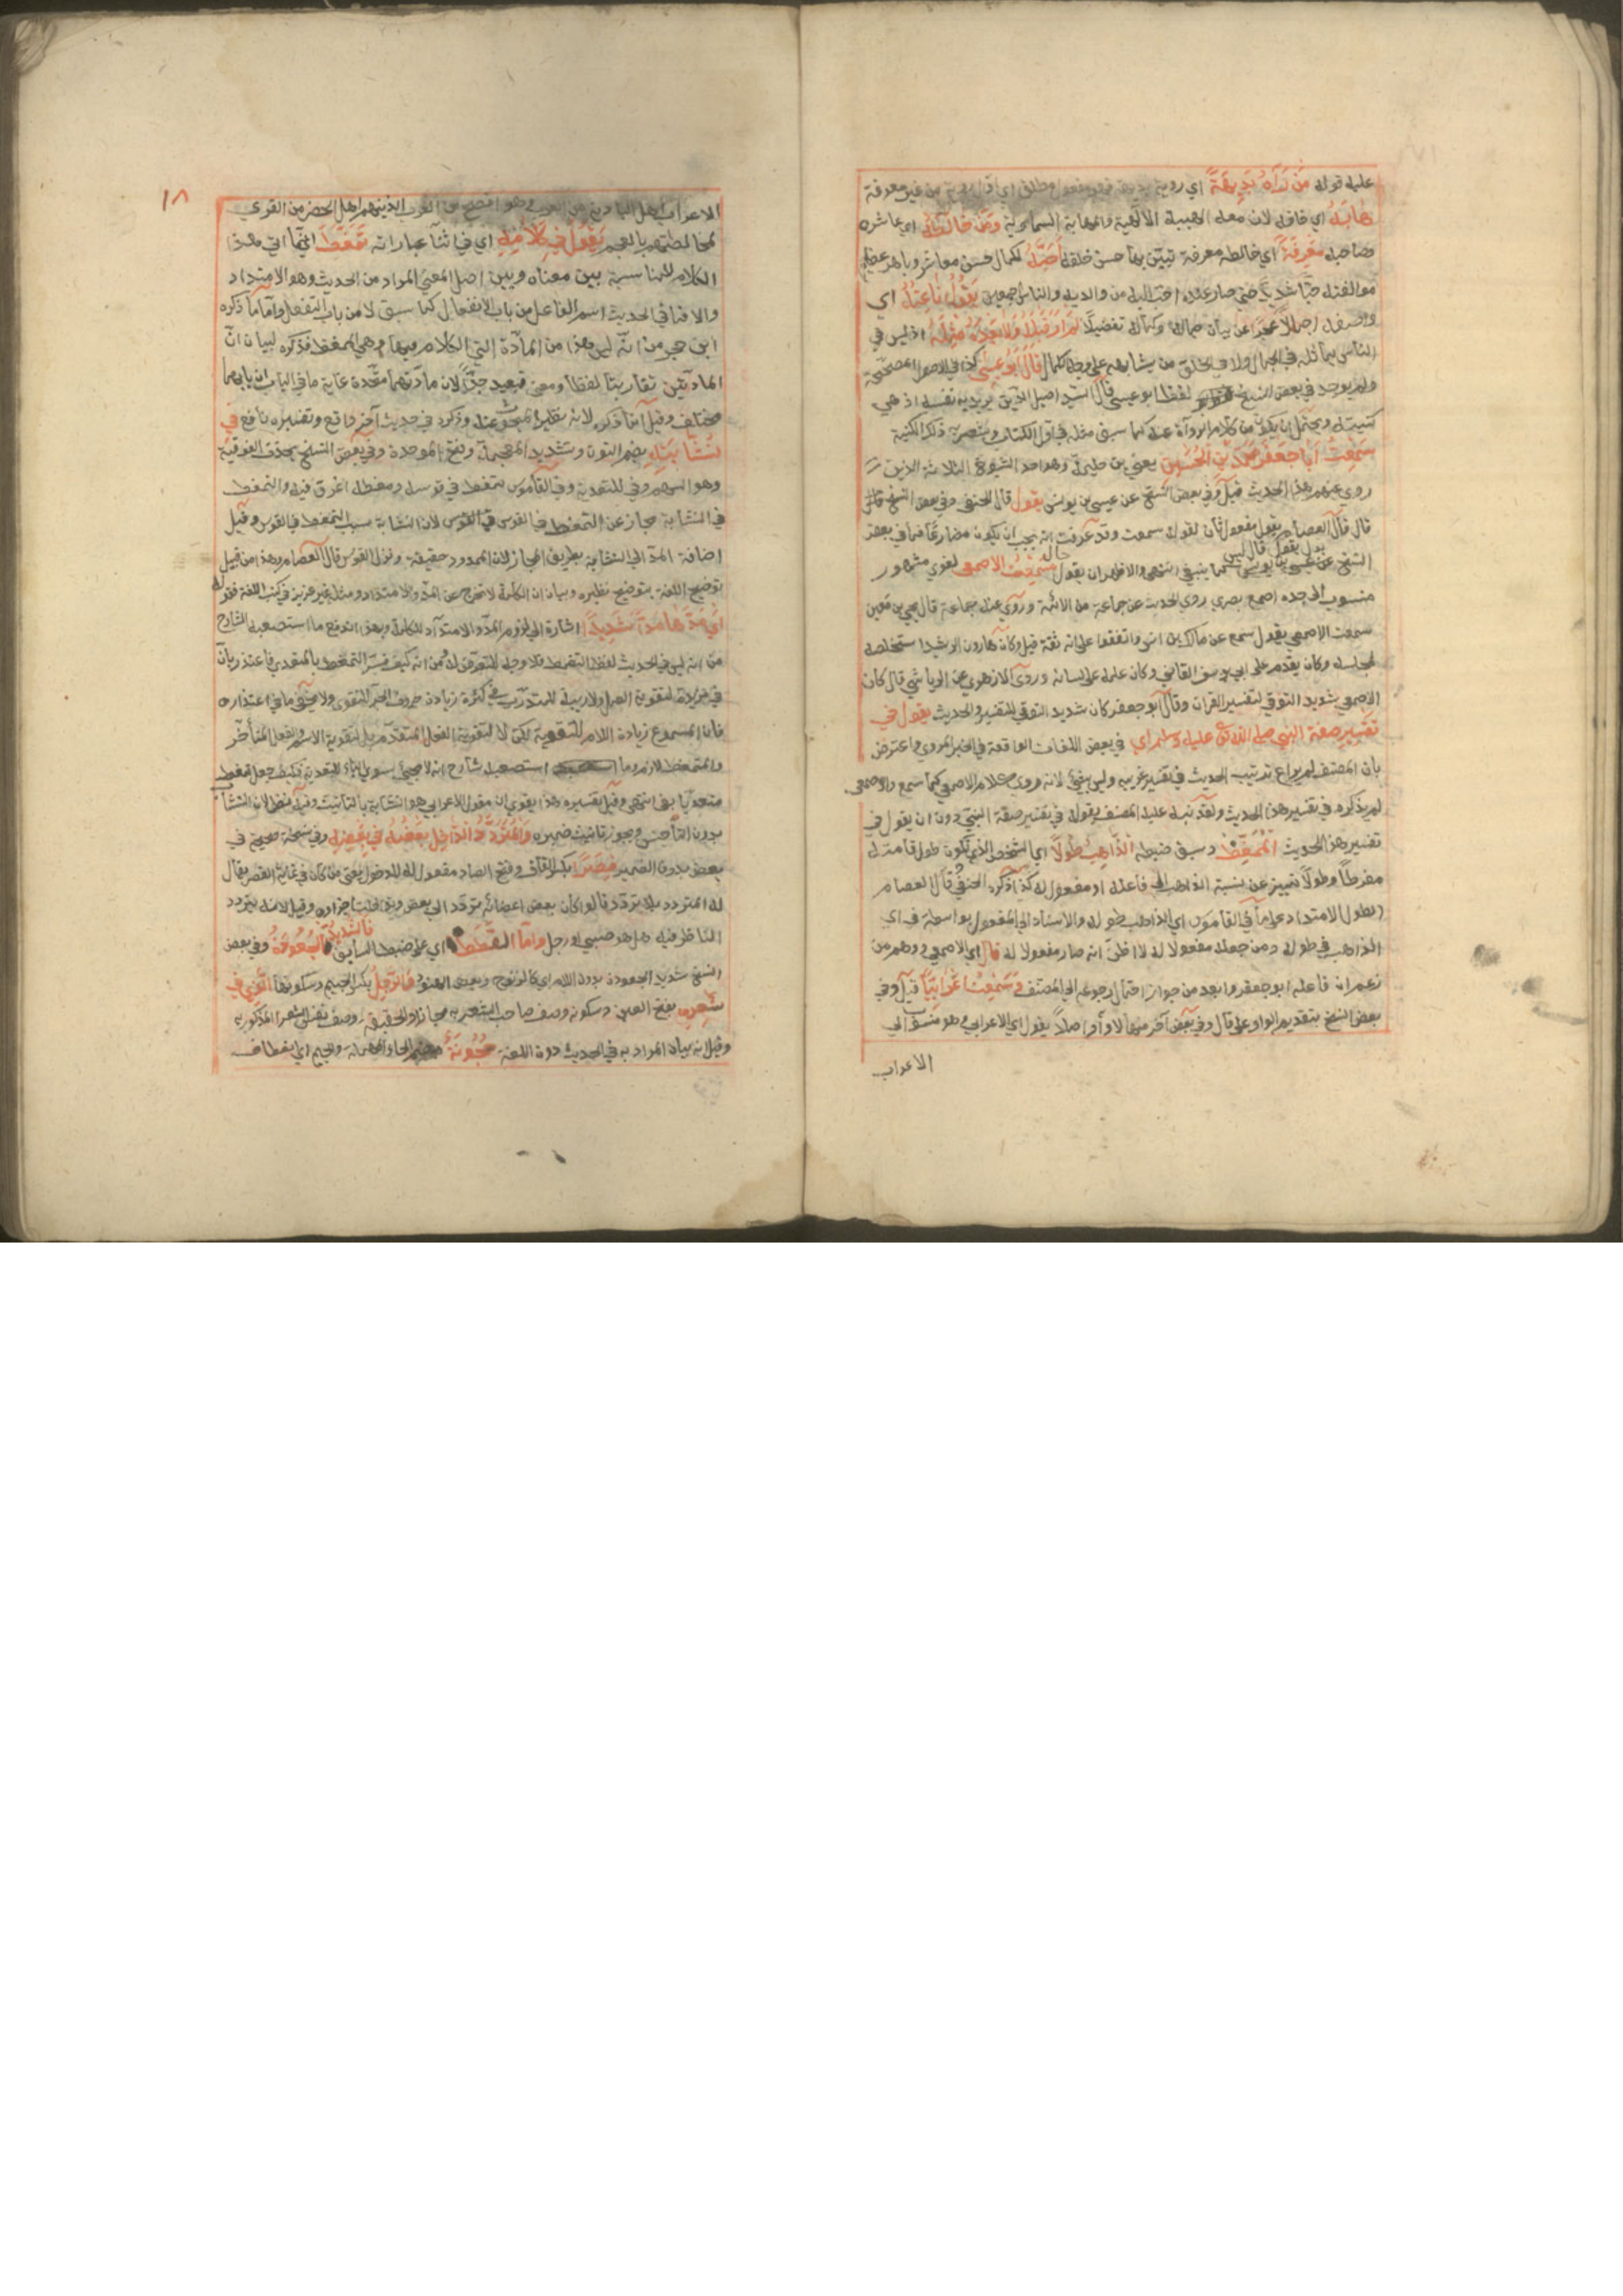 عليه قوله من رآه بديهة اي روية بديهة فهو مفعول مطلق اي من غير معرفة
هابه اي خافه لان معه الهيبة الالهية والمهابة السماوية ومن خالطه اي عاشره
وصاحبه معرفة اي خالطه معرفة تبين بها حسن خلقه احبه لكمال حسن معاشرته وباهر عظيم
مؤالفته حبا شديدا حتى صار عنده احب اليه من والديه والناس اجمعين يقول ناعته اي
واصفه اجمالا عجزا عن بيان جماله وكماله تفصيلا لم ار قبله ولا بعده مثله اذ ليس في
الناس يماثله في الجمال ولا في الخلق من يشابهه على وجه الكمال قال ابو عيسى كذا في الاصول المصححة
ولم يوجد في بعض النسخ لفظ ابو عيسى قال السيد اصيل الدين يريد به نفسه اذ هي
كنيته ويحتمل ان يكون من كلام الرواة عنه كما سبق مثله في اول الكتاب ذكر الكنية
سمعت ابا جعفر محمد بن الحسين يعني بن حليمة وهو احد الشيوخ الثلاثة الذين
روى عنهم هذا الحديث قيل وفي بعض النسخ عن عيسى بن يونس يقول قال الحنفي وفي بعض النسخ قال
قال العصام يقول مفعول ثان لقوله سمعت وقد عرفت انه يجب ان يكون مضارعا فما في بعض
بدل يقول قال ليس
النسخ عن عيسى بن يونس كما ينبغي انتهى والاظهر ان يقول حال سمعت الاصمعي لغوي مشهور
منسوب الى جده اصمع بصري روى الحديث عن جماعة من الائمة وروى عنه جماعة قال يحيى بن معين
سمعت الاصمعي يقول سمع عن مالك بن انس واتفقوا على انه ثقة قيل وكان هارون الرشيد استخلصه
لمجلسه وكان يقدمه على ابي يوسف القاضي وكان علمه على لسانه وروى الازهري عن الرياشي قال كان
الاصمعي شديد التوقي لتفسير القران وقال ابو جعفر كان شديد التوقي لتفسير الحديث يقول في
تفسير صفة النبي صلى الله تعالى عليه وسلم اي في بعض اللغات الواقعة في الخبر المروي واعترض
بان المصنف لم يراع ترتيب الحديث في تفسير غريبه وليس بشيء لانه روى كلام الاصمعي كما سمع والاصمعي
لم يذكره في تفسير هذا الحديث ولقد نبه عليه المصنف بقوله في تفسير صفة النبي دون ان يقول في
تفسير هذا الحديث الممغط وسبق ضبطه الذاهب طولا اي الشخص الذي يكون طول قامته
مفرطا وطولا تمييز عن نسبة الذاهب الى فاعله او مفعول له كذا ذكره الحنفي وقال العصام
الطول الامتداد على ما في القاموس اي الذاهب طوله والاسناد الى المفعول بواسطة في اي
الذاهب في طوله ومن جعله مفعولا له لا اظن انه صار مفعولا له قال اي الاصمعي ووهم من
زعم ان فاعله ابو جعفر وابعد من جوز احتمال رجوعه الى المصنف وسمعت اعرابيا قيل وفي
بعض النسخ بتقديم الواو على قال وفي بعض آخر منهما لا واو اصلا يقول اي الاعرابي وهو منسوب الى
الاعراب
١٨
الاعراب اهل البادية من العرب وهو افصح من العرب الذين هم اهل الحضر من القرى
لمخالطتهم بالعجم يقول في كلامه اي في اثناء عباراته تمغط انما اتى بهذا
الكلام للمناسبة بين معناه وبين اصل المعنى المراد من الحديث وهو الامتداد
والا فما في الحديث اسم الفاعل من باب الانفعال كما سبق لا من باب التفعل واما ما ذكره
ابن حجر من انه ليس هذا من المادة التي الكلام فيها وهي الممغط فذكره لبيان ان
المادتين تقاربتا لفظا ومعنى فبعيد جدا لان مادتهما متحدة غاية ما في الباب ان بابهما
مختلف وقيل انما ذكره لانه نظير المبحوث عنه وذكره في حديث آخر واقع وتفسيره نافع في
نشابته بضم النون وتشديد المعجمة وفتح الموحدة وفي بعض النسخ بحذف الفوقية
وهو السهم وفي للتعدية وفي القاموس تمغط في قوسه ومغطه اغرق فيه والتمغط
في النشابة مجاز عن التمغط في القوس لان النشابة سبب التمغط في القوس وقيل
اضافة المد الى النشابة بطريق المجاز لان الممدود حقيقة وتر القوس قال العصام وهذا من قبيل
توضيح اللغة بتوضيح نظيره وبيان ان الكلمة لا تخرج عن المد والامتداد ومثله غير عزيز في كتب اللغة فقوله
اي مدها مدا شديدا اشارة الى لزوم المد والامتداد للكلمة وبهذا اندفع ما استصعبه الشارح
من انه ليس في الحديث لفظ التمغط فلا وجه للتعرض له ومن انه كيف فسر التمغط بالمتعدي فاعتذر بان
في مزيدة لتقوية العمل ولا ريبة للمتدرب في كثرة زيادة حروف الجر للتقوى ولا يخفى ما في اعتذاره
فان المسموع زيادة اللام للتقوية لكن لا لتقوية الفعل المتقدم بل لتقوية الاسم والفعل المتأخر
والمتمغط لازم وما استصعبه شارح انه لا يجيء سوى الباء للتعدية فكيف جعل تمغط
متعديا بفي انتهى وقيل تفسيره هذا يقوي ان مقول الاعرابي هو نشابة بالتانيث وفيه نظر لان النشاب
بدون التاء جنس ويجوز تانيث ضميره والمتردد الداخل بعضه في بعض وفي نسخة صحيحة في
بعض بدون الضمير قصرا بكسر القاف وفتح الصاد مفعول له للدخول يعني من كان في غاية القصر يقال
له المتردد بلا تردد قالوا كأن بعض اعضائه تردد الى بعض وتداخلت اجزاؤه وقيل لانه يتردد
الناظر فيه هل هو صبي او رجل واما القطط اي على ضبط السابق فالشديد الجعودة وفي بعض
النسخ شديد الجعودة بدون اللام اي كالزنوج وبعض الهنود والرجل بكسر الجيم وسكونها الذي في
شعره بفتح العين وسكونه وصف صاحب الشعر به مجاز او الحقيقة وصف نفس الشعر المذكور به
وقيل انه بيان المراد به في الحديث دون اللغة حجونة بضم الحاء المهملة والجيم اي انعطاف